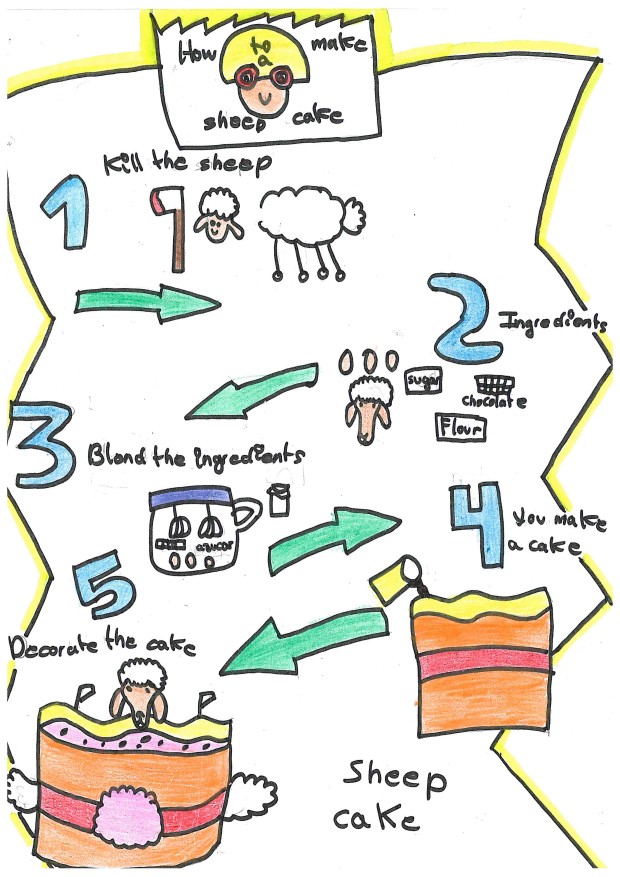 How to make
a
sheep cake
Kill the sheep
1
2
Ingredients
sugar
chocolate
Flour
3
Blend the ingredients
azucar
4
You make
a cake
5
Decorate the cake
Sheep
cake